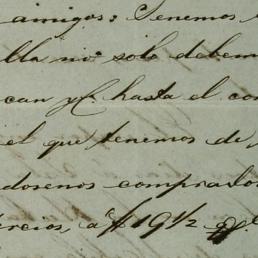 amigos: Tenemos
lla no solo debem
can y C. hasta el con
el que tenemos de
dosenos comprados
ercios, a $19 1/2 qq